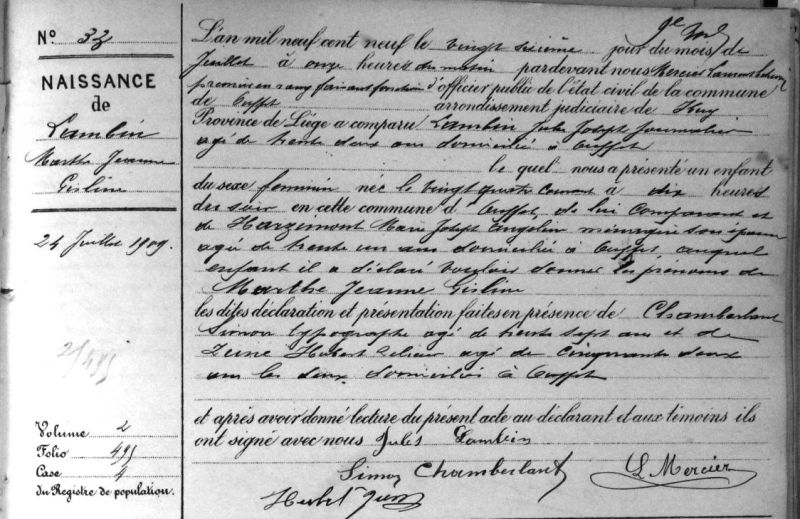 N° 33
NAISSANCE
de
Lambin
Marthe Jeanne
Gisline
24 Juillet 1909.
Volume 2
Folio 495
Case 4
du Registre de population.
L'an mil neuf cent neuf le vingt sixième jour du mois de
Juillet à onze heures du matin pardevant nous Mercier Laurent
premier en rang faisant fonction d'officier public de l'état civil de la commune
de Ouffet arrondissement judiciaire de Huy
Province de Liége a comparu Lambin Jules Joseph Journalier
agé de trente deux ans domicilié à Ouffet
le quel nous a présenté un enfant
du sexe féminin née le vingt quatre courant à dix heures
du soir en cette commune d' Ouffet, de lui comparant et
de Harzimont Marie Joseph Angeline ménagère son épouse
agée de trente un ans domiciliée à Ouffet auquel
enfant il a déclaré vouloir donner les prénoms de
Marthe Jeanne Gisline
les dites déclaration et présentation faites en présence de Chamberland
Simon typographe agé de trente sept ans et de
Hubert agé de cinquante deux
ans les deux domiciliés à Ouffet
et après avoir donné lecture du présent acte au déclarant et aux témoins ils
ont signé avec nous Jules Lambin
Simon Chamberlant L Mercier